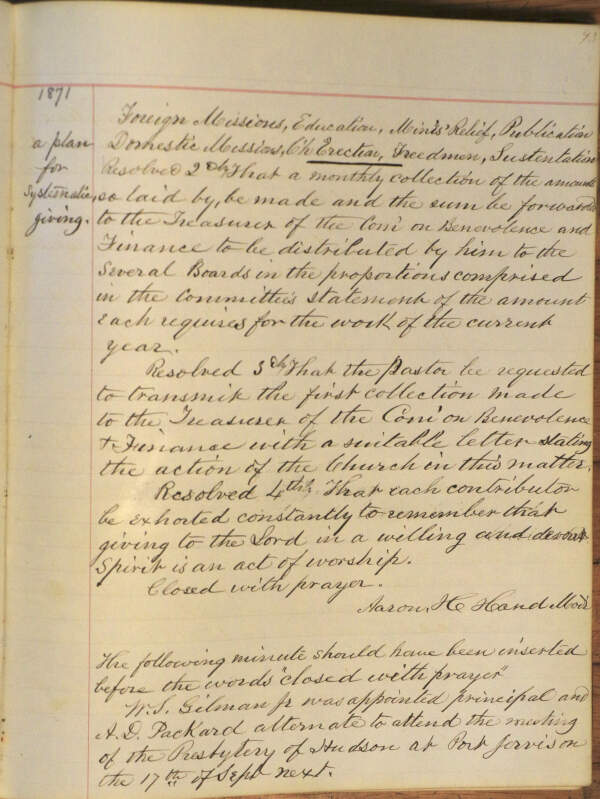 73
1871
a plan
for
Systematic
giving.
Foreign Missions, Education, Minis' Relief, Publication
Domestic Missions, Ch Erection, Freedmen, Sustentation
Resolved 2dly That a monthly collection of the amounts
so laid by, be made and the sum be forwarded
to the Treasurer of the Com' on Benevolence and
Finance to be distributed by him to the
Several Boards in the proportions comprised
in the Committee's statement of the amount
each requires for the work of the current
year.
Resolved 3dly That the Pastor be requested
to transmit the first collection made
to the Treasurer of the Com' on Benevolence
& Finance with a suitable letter stating
the action of the Church in this matter.
Resolved 4thly That each contributor
be exhorted constantly to remember that
giving to the Lord in a willing and devout
Spirit is an act of worship.
Closed with prayer.
Aaron H Hand Mod'r
The following minute should have been inserted
before the words "closed with prayer"
W. S. Gilman Jr was appointed principal and
A. D. Packard alternate to attend the meeting
of the Presbytery of Hudson at Port Jervis on
the 17th of Sept next.